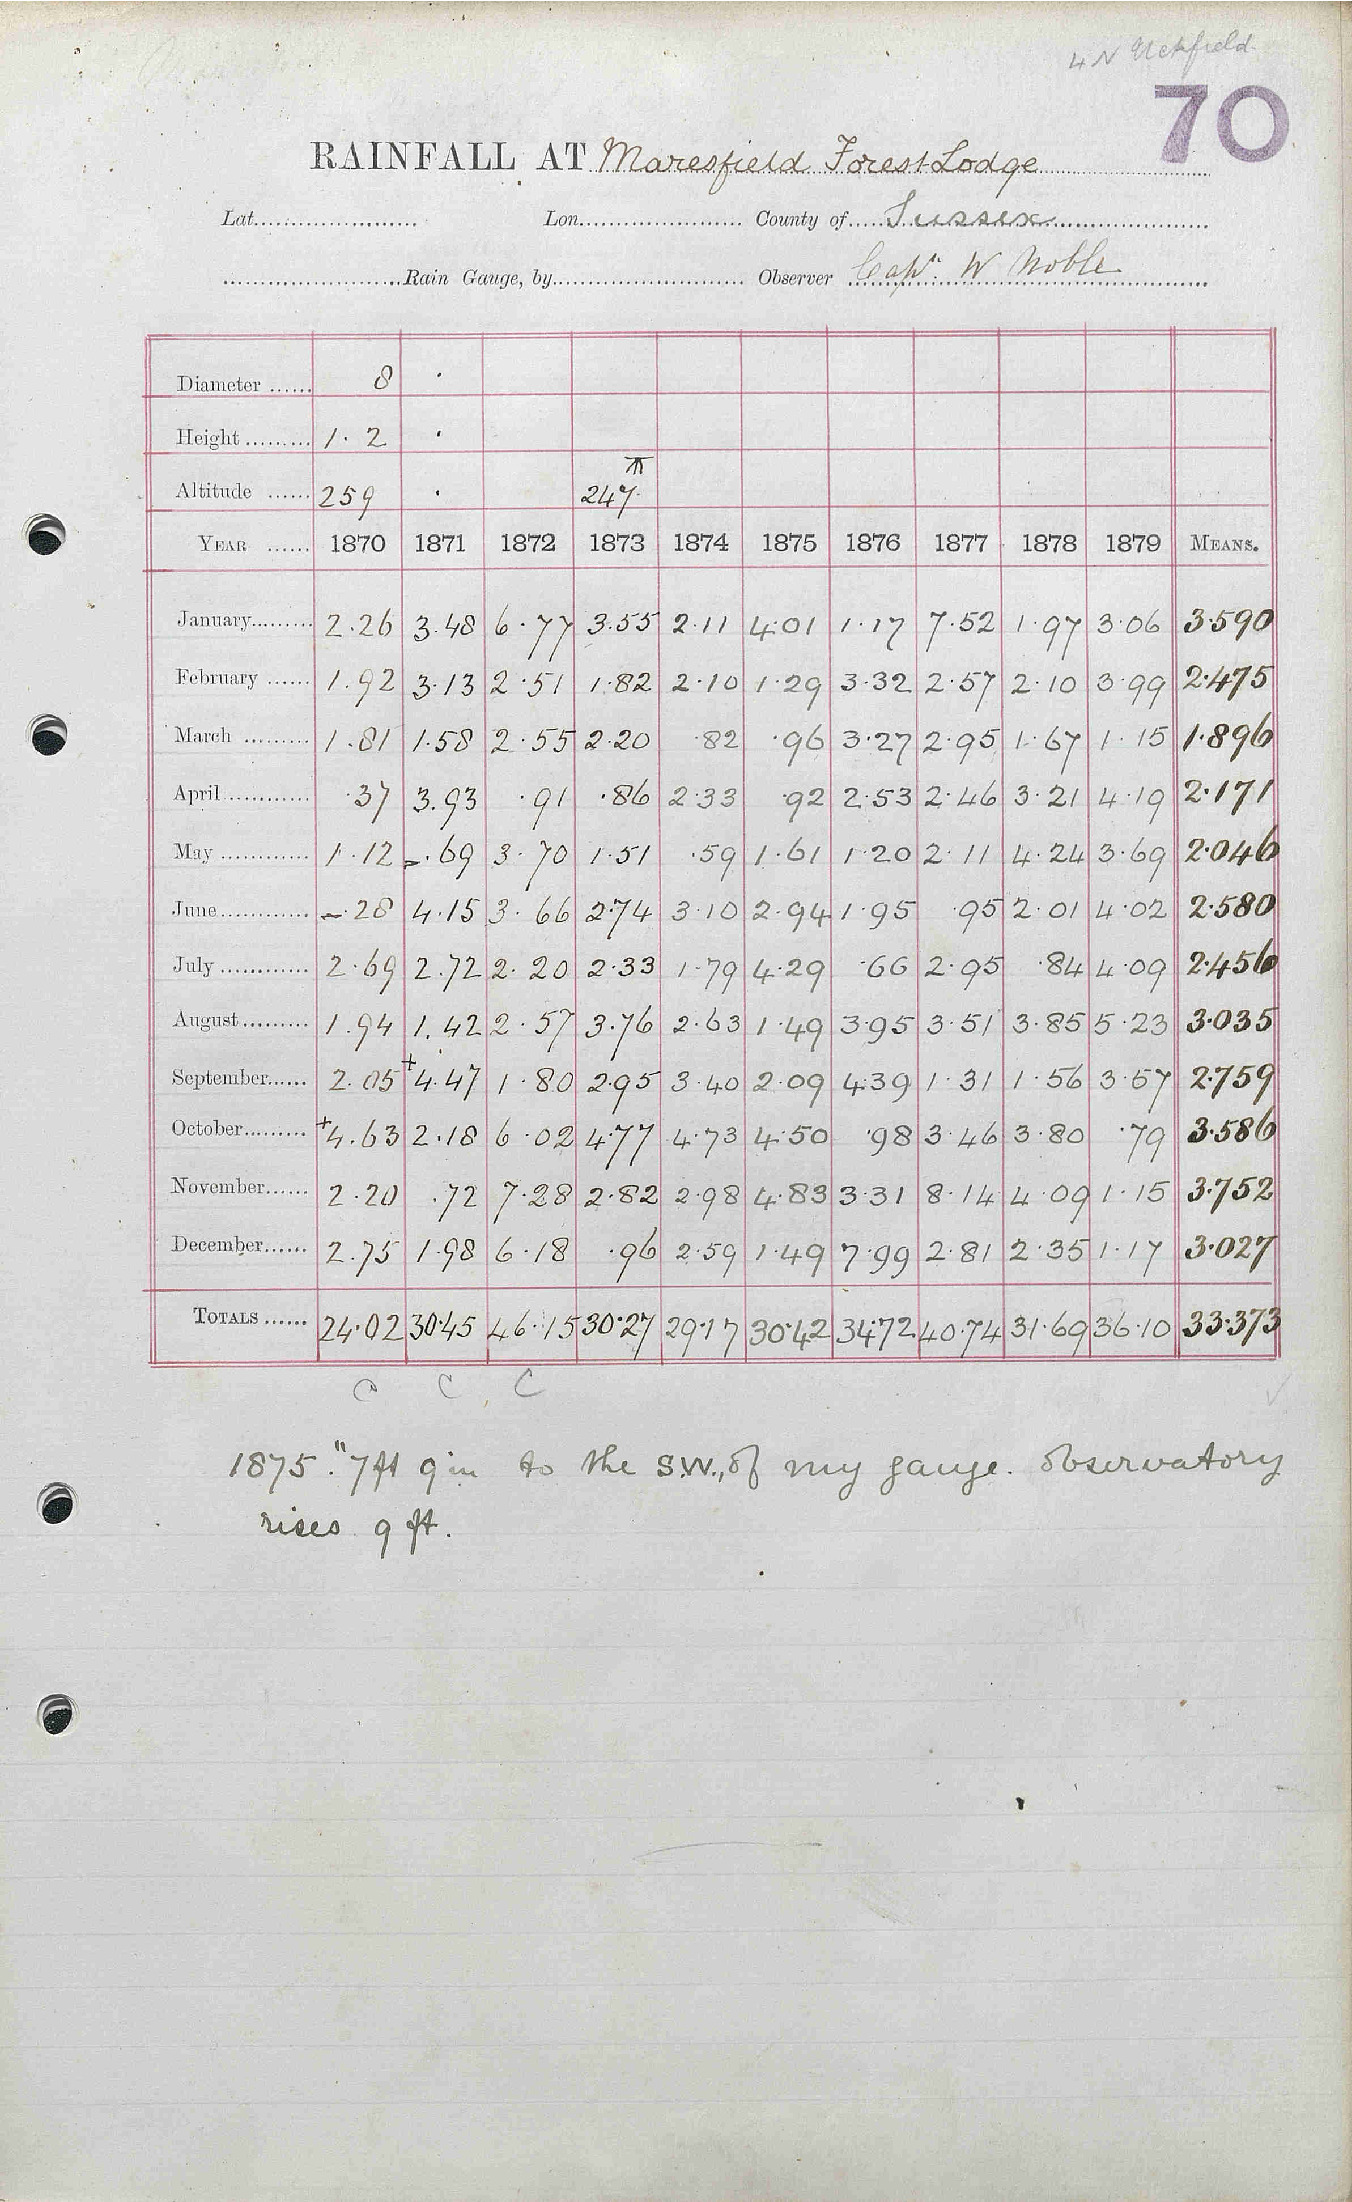 4 N Uckfield
70
RAINFALL AT Maresfield Forest Lodge
Lat. Lon. County of Sussex
Rain Gauge, by Observer Capt. W Noble
Diameter 8 ·
Height 1·2 ·
Altitude 259 · 247
YEAR 1870 1871 1872 1873 1874 1875 1876 1877 1878 1879 MEANS.
January 2·26 3·48 6·77 3·55 2·11 4·01 1·17 7·52 1·97 3·06 3·590
February 1·92 3·13 2·51 1·82 2·10 1·29 3·32 2·57 2·10 3·99 2·475
March 1·81 1·58 2·55 2·20 ·82 ·96 3·27 2·95 1·67 1·15 1·896
April ·37 3·93 ·91 ·86 2·33 ·92 2·53 2·46 3·21 4·19 2·171
May 1·12 -·69 3·70 1·51 ·59 1·61 1·20 2·11 4·24 3·69 2·046
June -·28 4·15 3·66 2·74 3·10 2·94 1·95 ·95 2·01 4·02 2·580
July 2·69 2·72 2·20 2·33 1·79 4·29 ·66 2·95 ·84 4·09 2·456
August 1·94 1·42 2·57 3·76 2·63 1·49 3·95 3·51 3·85 5·23 3·035
September 2·05 +4·47 1·80 2·95 3·40 2·09 4·39 1·31 1·56 3·57 2·759
October +4·63 2·18 6·02 4·77 4·73 4·50 ·98 3·46 3·80 ·79 3·586
November 2·20 ·72 7·28 2·82 2·98 4·83 3·31 8·14 4·09 1·15 3·752
December 2·75 1·98 6·18 ·96 2·59 1·49 7·99 2·81 2·35 1·17 3·027
TOTALS 24·02 30·45 46·15 30·27 29·17 30·42 34·72 40·74 31·69 36·10 33·373
C C C
1875. "7ft 9in to the S.W., of my gauge. Observatory
rises 9 ft.